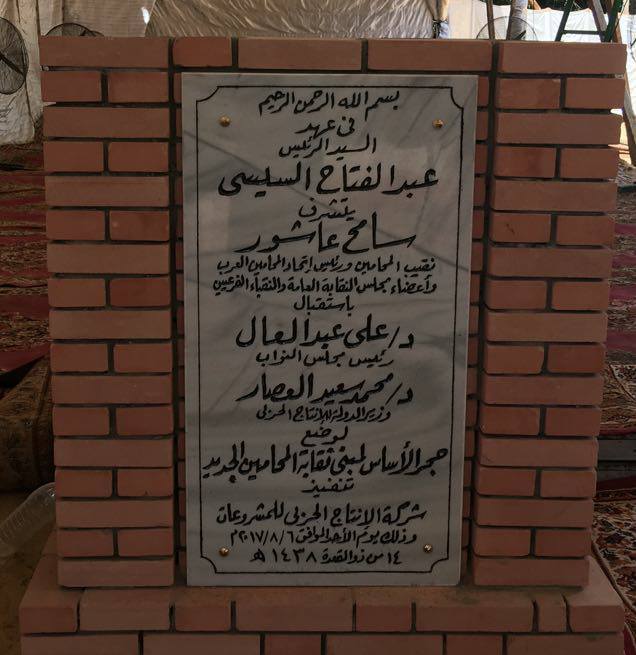 بسم الله الرحمن الرحيم
فى عهد
السيد الرئيس
عبد الفتاح السيسى
يتشرف
سامح عاشور
نقيب المحامين ورئيس إتحاد المحامين العرب
وأعضاء مجلس النقابة العامة والنقباء الفرعيين
باستقبال
د/على عبد العال
رئيس مجلس النواب
د/محمد سعيد العصار
وزير الدولة للإنتاج الحربى
لوضع
حجر الأساس لمبنى نقابة المحامين الجديد
تنفيذ
شركة الإنتاج الحربى للمشروعات
وذلك يوم الأحد الموافق ٢٠١٧/٨/٦م
١٤ من ذو القعدة ١٤٣٨ هـ